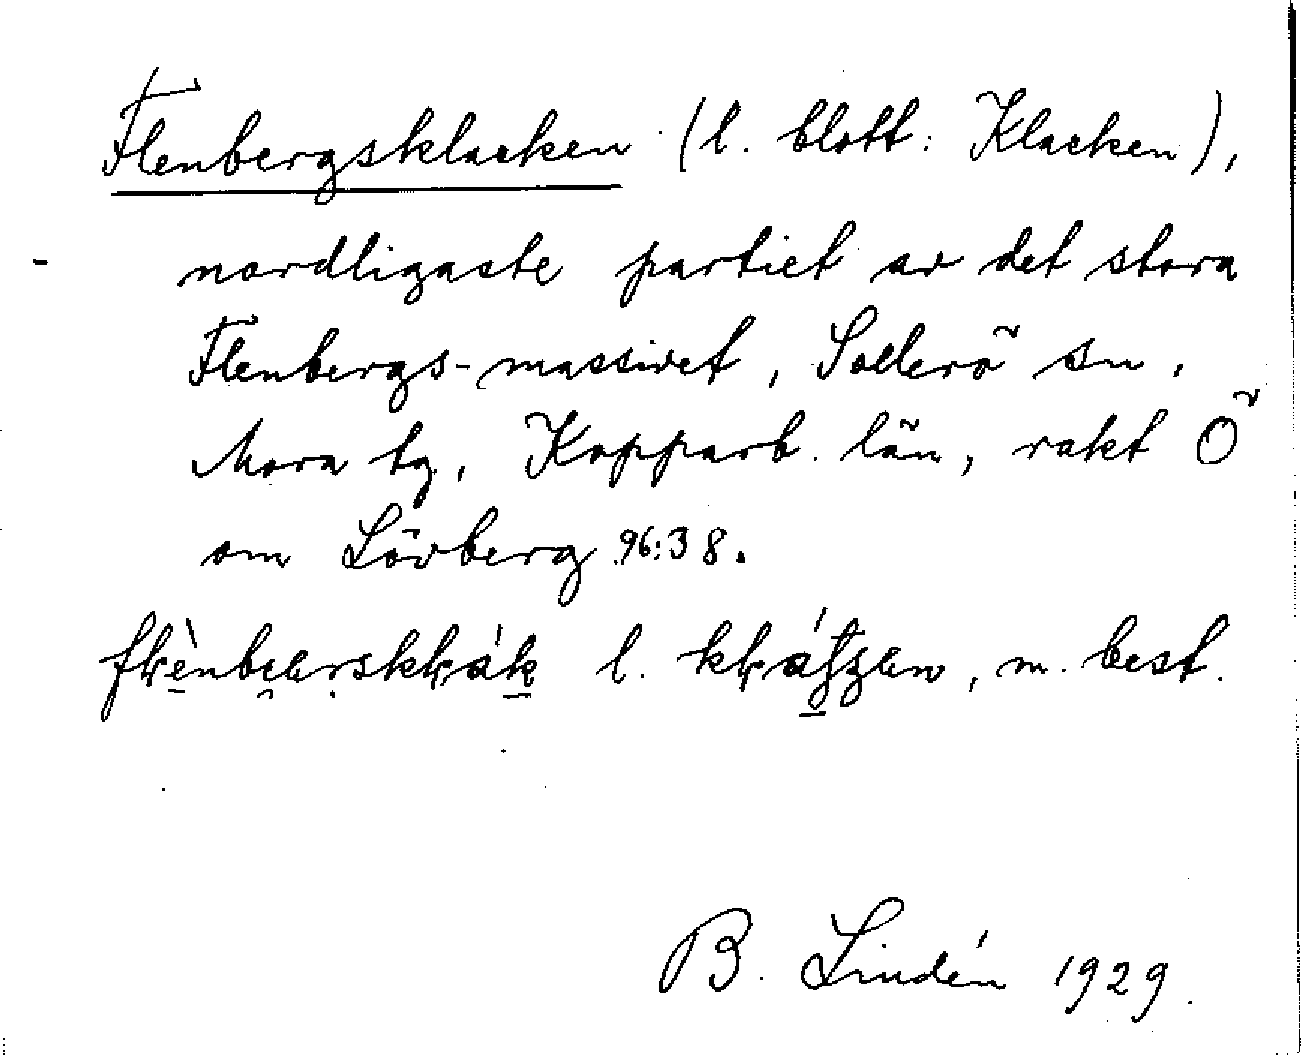 Flenbergsklacken (l. blott: Klacken),
nordligaste partiet av det stora
Flenbergs-massivet, Sollerö sn,
Mora tg, Kopparb. län, rakt Ö
om Lövberg 96:38.
l. m. best.
B. Lindén 1929.